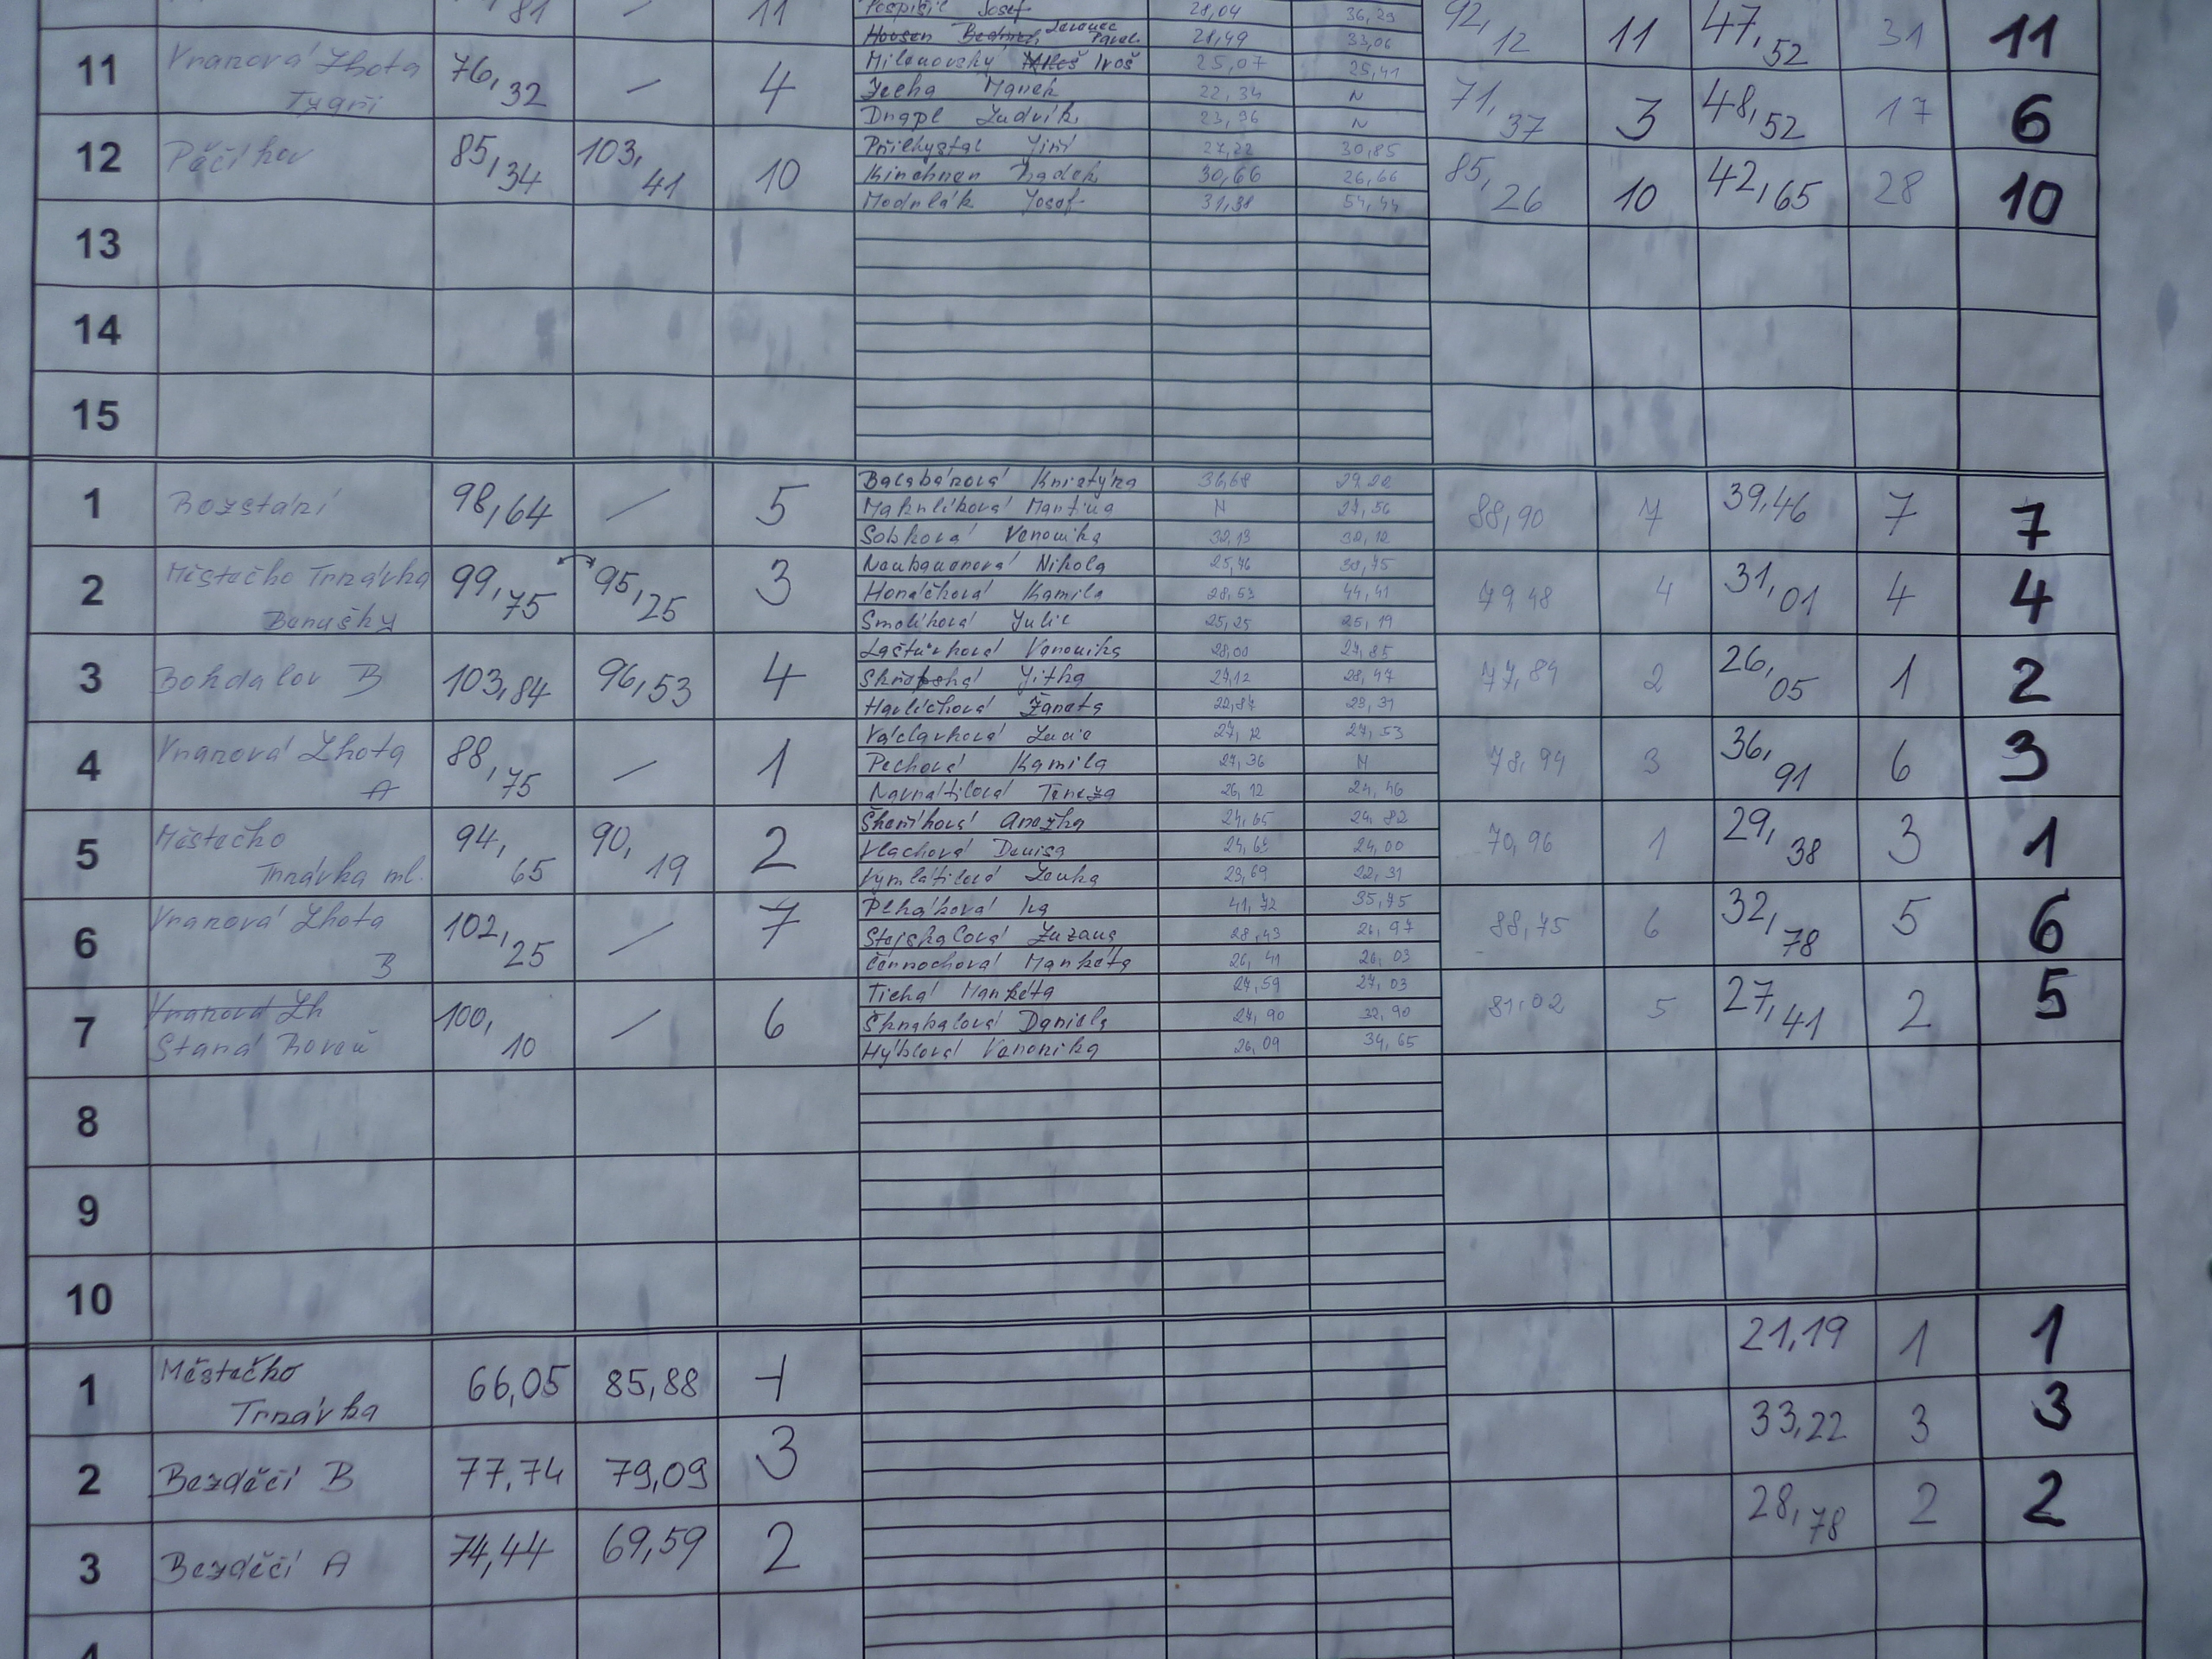 81 – 11 Pospíšil Josef 28,04 36,29 92,12 11 47,52 31 11
Pavel 28,49 33,06
11 Vranová Lhota Tygři 76,32 – 4 Milenovský Ivoš 25,07 25,41 71,37 3 48,52 17 6
Marek 22,34 N
Ludvík 23,96 N
12 Péčíkov 85,34 103,41 10 Přichystal Jiří 27,22 30,85 85,26 10 42,65 28 10
Kirchner Radek 30,66 26,66
Modrlák Josef 31,38 54,44
13
14
15
1 Rozstání 98,64 – 5 Balabánová Kristýna 36,68 29,22 88,90 7 39,46 7 7
Makrlíková Martina N 27,56
Sobková Veronika 32,13 32,12
2 Městečko Trnávka Berušky 99,75 95,25 3 Neubauerová Nikola 25,76 30,75 79,48 4 31,01 4 4
Horáčková Kamila 28,53 44,41
Smolíková Julie 25,25 25,19
3 Bohdalov B 103,84 96,53 4 Laštůvková Veronika 28,00 27,85 77,84 2 26,05 1 2
Jitka 27,12 28,47
Havlíčková Žaneta 22,87 23,31
4 Vranová Lhota A 88,75 – 1 Václavková Lucie 27,12 27,53 78,94 3 36,91 6 3
Pechová Kamila 27,36 N
Navrátilová Tereza 26,12 24,46
5 Městečko Trnávka ml. 94,65 90,19 2 Škeříková Anežka 24,65 24,82 70,96 1 29,38 3 1
Vlachová Denisa 24,65 24,00
Vymlátilová Lenka 23,69 22,31
6 Vranová Lhota B 102,25 – 7 Plháková Iva 41,72 35,75 88,75 6 32,78 5 6
Stejskalová Zuzana 28,43 26,97
Černochová Markéta 26,41 26,03
7 Vranová Lh Stará Roveň 100,10 – 6 Tichá Markéta 27,59 27,03 81,02 5 27,41 2 5
Škrabalová Daniela 27,90 32,90
Hýblová Veronika 26,09 34,65
8
9
10
1 Městečko Trnávka 66,05 85,88 1 21,19 1 1
2 Bezděčí B 77,74 79,09 3 33,22 3 3
3 Bezděčí A 74,44 69,59 2 28,78 2 2
4